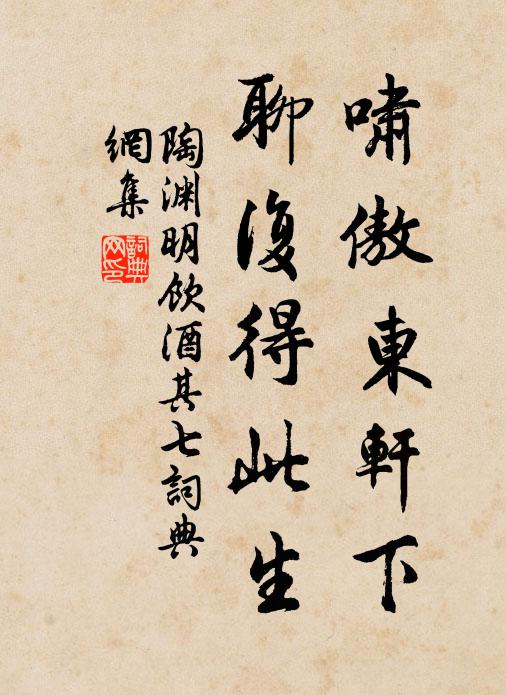 嘯傲東軒下
聊復得此生
陶淵明飲酒其七詞典
網集
詞典
网印